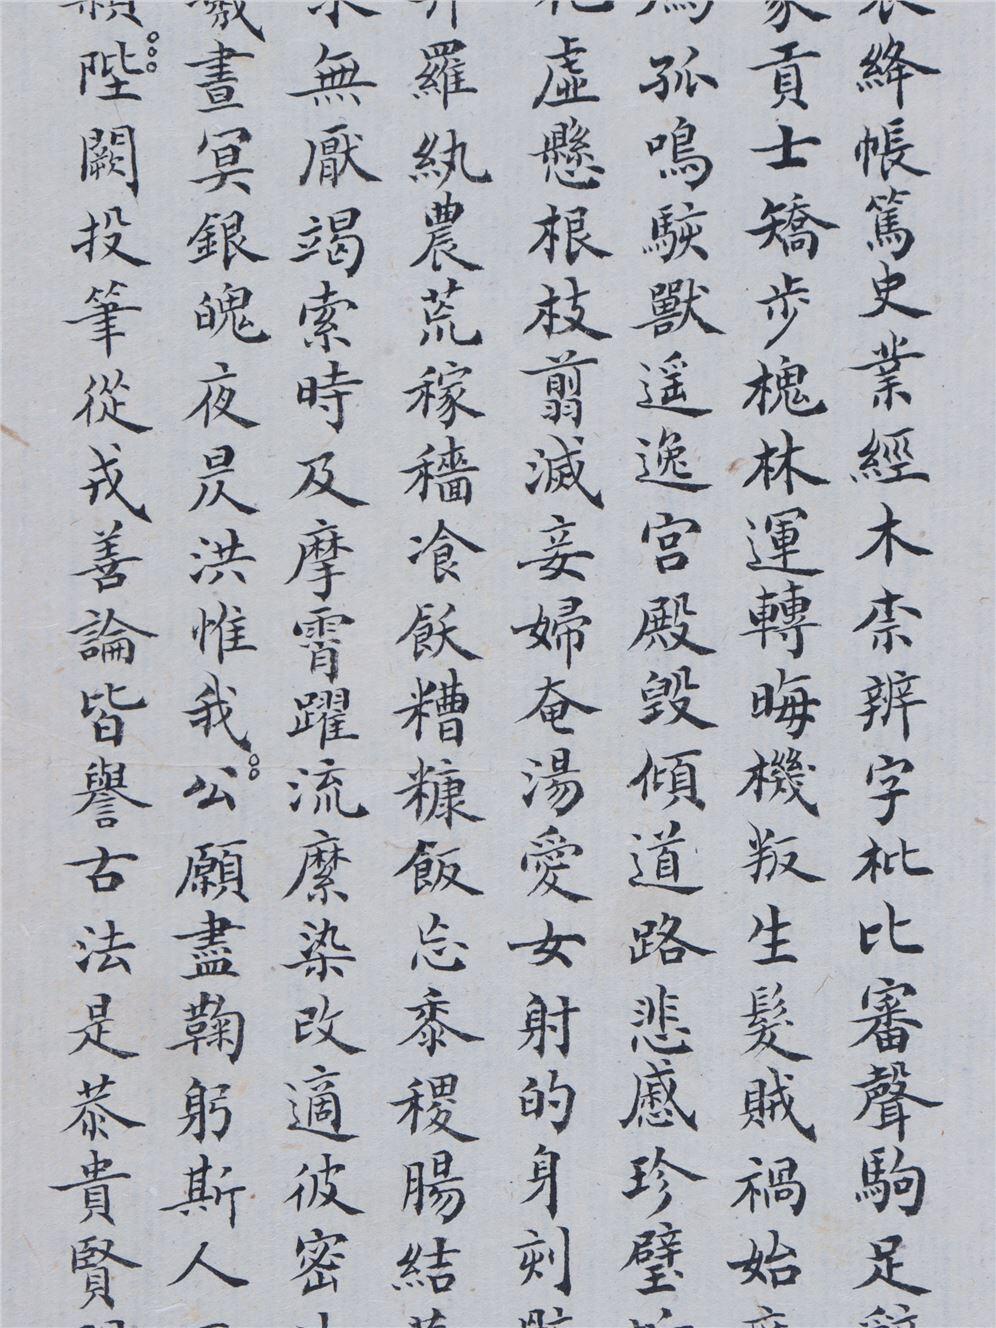 絳帳篤史業經木柰辨字枇比審聲駒足
家貢士矯步槐林運轉晦機叛生髮賊禍始
孤鳴駭獸遥逸宫殿毁傾道路悲慼珍璧
虛懸根枝翦滅妾婦奄湯愛女射的身刻
羅紈農荒稼穡飡飫糟糠飯忘黍稷腸結
無厭竭索時及摩霄躍流縻染改適彼密
晝冥銀魄夜昃洪惟我公願盡鞠躬斯人
陛闕投筆從戎善論皆譽古法是恭貴賢